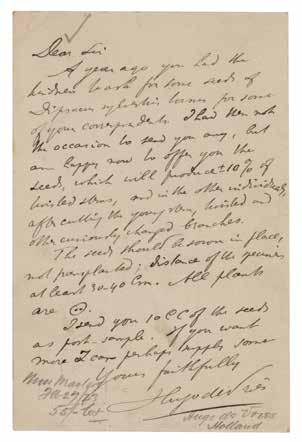 Dear Sir
A year ago you had the
kindness to ask for some seeds of
Dipsacus sylvestris torsus for some
of your correspondents. I had then not
the occasion to send you any, but
am happy now to offer you the
seeds, which will produce ± 10% of
twisted stems, and in the other individuals,
after cutting the young stem, twisted and
other curiously changed branches.
The seeds should be sown in place,
not transplanted; distance of the
at least 30-40 Cm. All plants
are ⊙.
I send you 10 CC of the seeds
as post-sample. If you want
more I can perhaps supply some
Yours faithfully
Hugo de Vries
Hugo de Vries
Holland